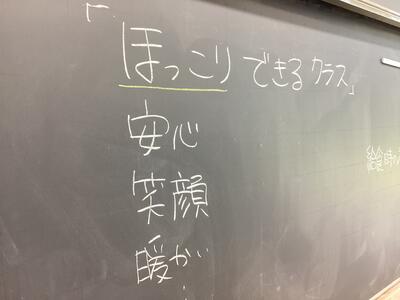 「ほっこりできるクラス」
安心
笑顔
暖かい
給食時